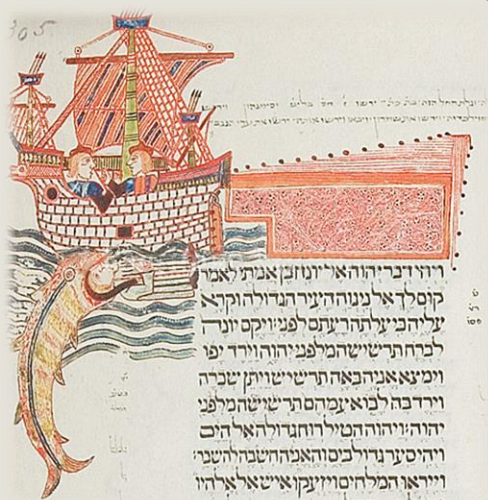 305
ויהי דבר יהוה אל יונה בן אמתי לאמר
קום לך אל נינוה העיר הגדולה וקרא
עליה כי עלתה רעתם לפני ויקם יונה
לברח תרשישה מלפני יהוה וירד יפו
וימצא אניה באה תרשיש ויתן שכרה
וירד בה לבוא עמהם תרשישה מלפני
יהוה׃ ויהוה הטיל רוח גדולה אל הים
ויהי סער גדול בים והאניה חשבה להשבר׃
וייראו המלחים ויזעקו איש אל אלהיו